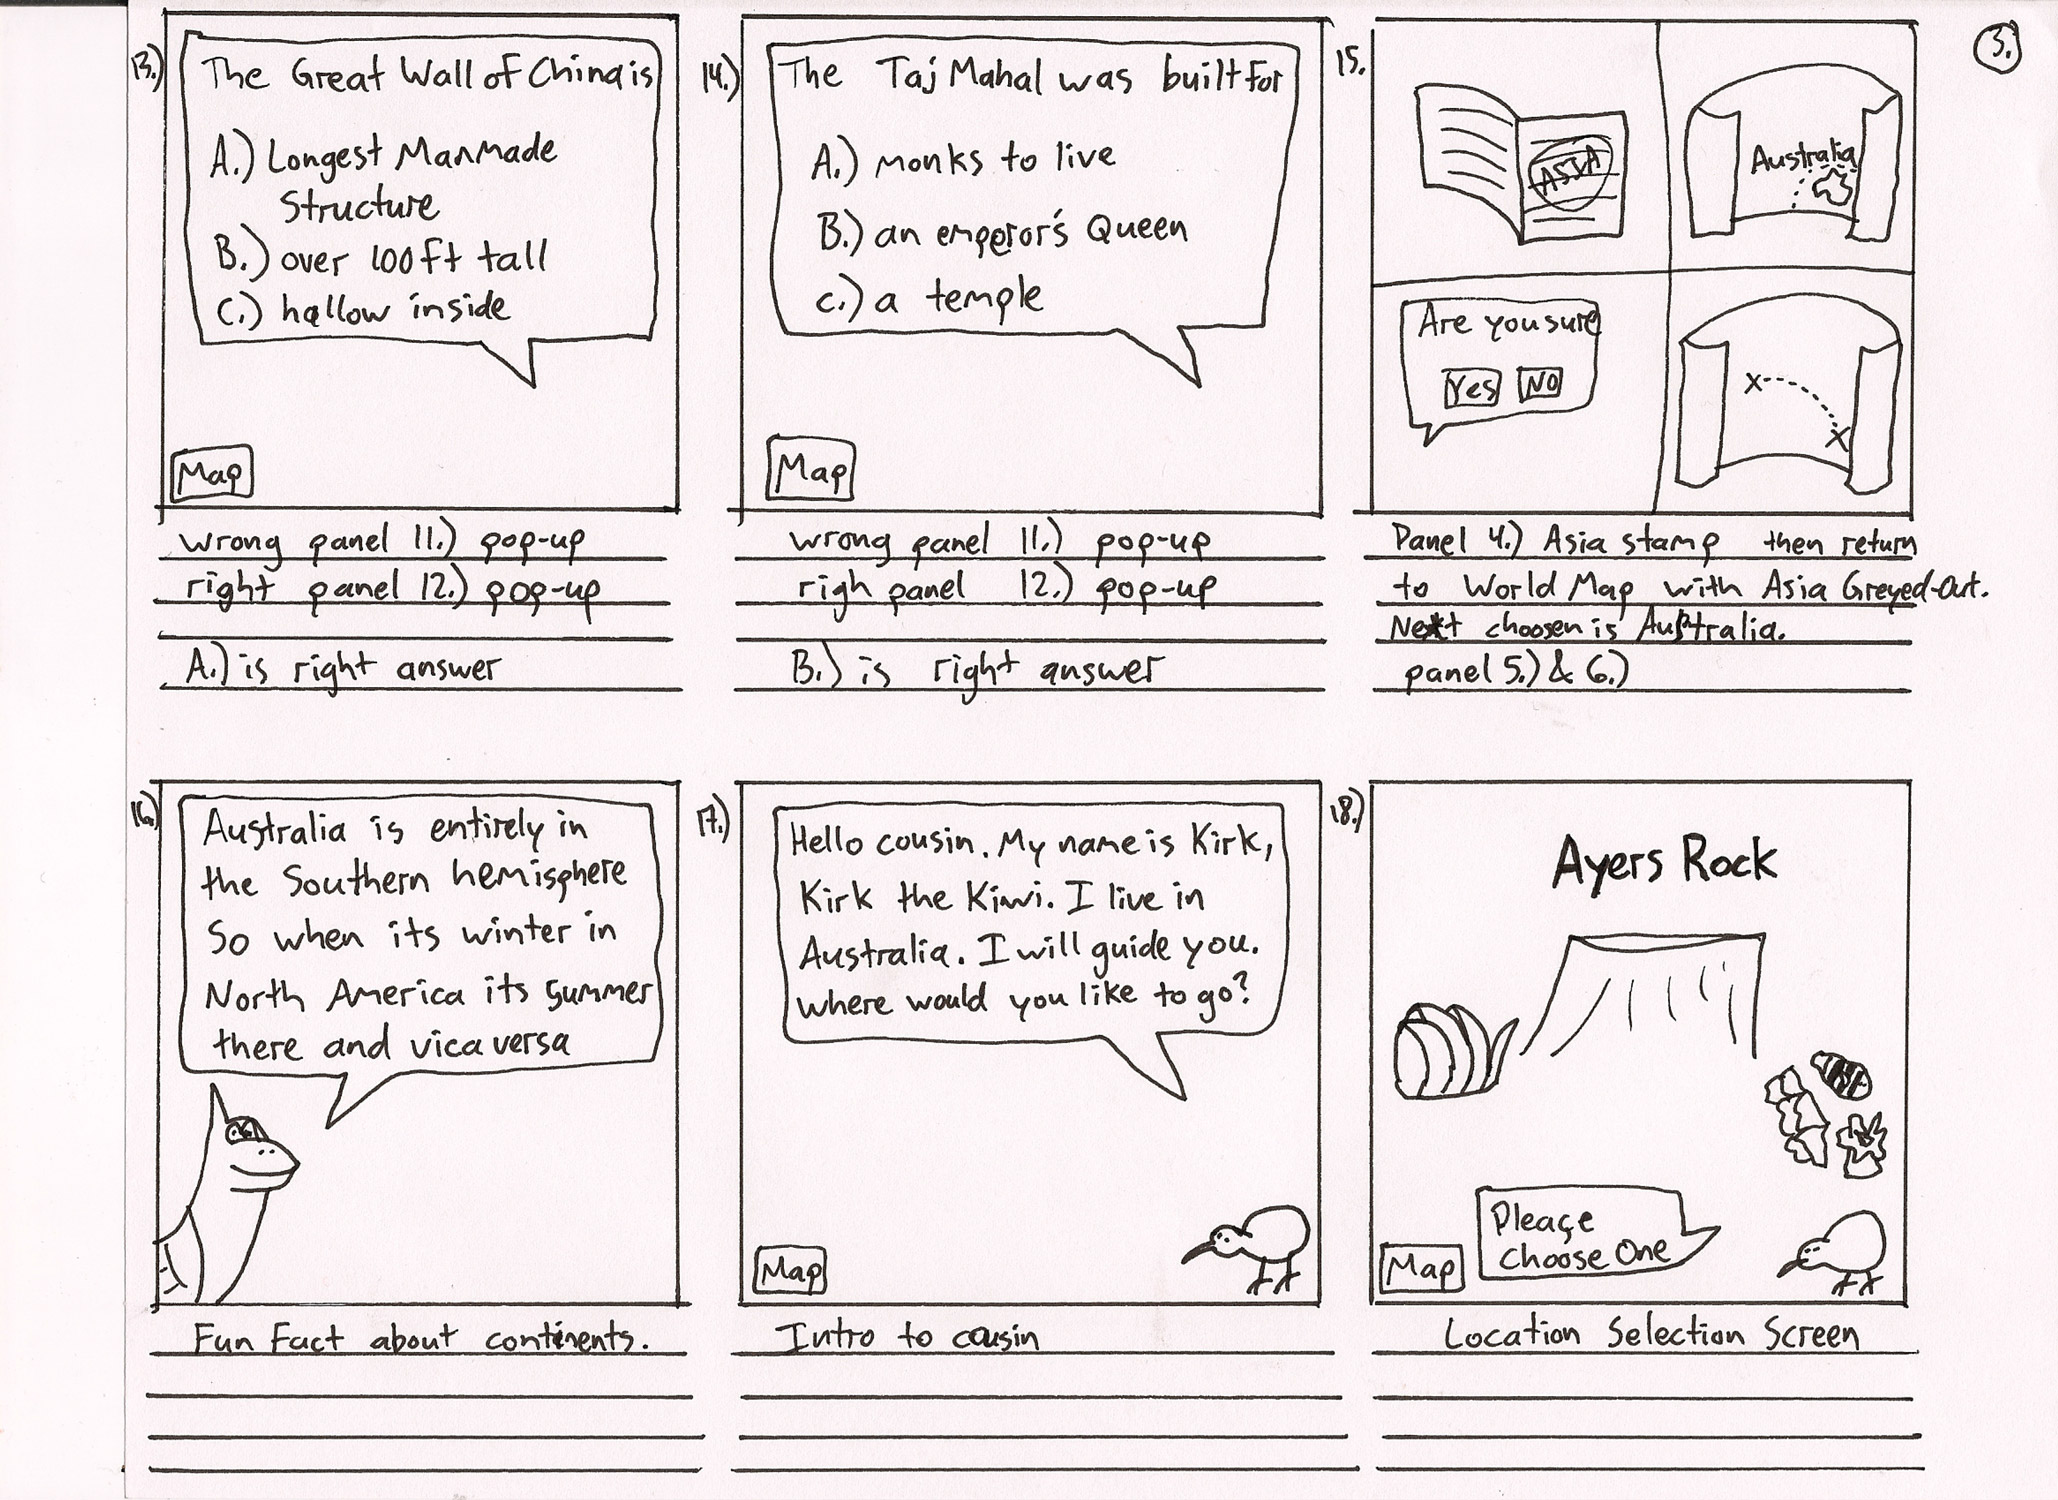 3.
13.)
The Great Wall of China is
A.) Longest Manmade
Structure
B.) over 100ft tall
C.) hallow inside
Map
wrong panel 11.) pop-up
right panel 12.) pop-up
A.) is right answer
14.)
The Taj Mahal was built for
A.) monks to live
B.) an emperor's Queen
C.) a temple
Map
wrong panel 11.) pop-up
righ panel 12.) pop-up
B.) is right answer
15.
ASIA
Australia
Are you sure
Yes NO
X X
Panel 4.) Asia stamp then return
to World Map with Asia Greyed-Out.
Next choosen is Australia.
panel 5.) & 6.)
16.)
Australia is entirely in
the Southern hemisphere
So when its winter in
North America its summer
there and vica versa
Fun Fact about continents.
17.)
Hello cousin. My name is Kirk,
Kirk the Kiwi. I live in
Australia. I will guide you.
where would you like to go?
Map
Intro to cousin
18.)
Ayers Rock
Please
choose One
Map
Location Selection Screen